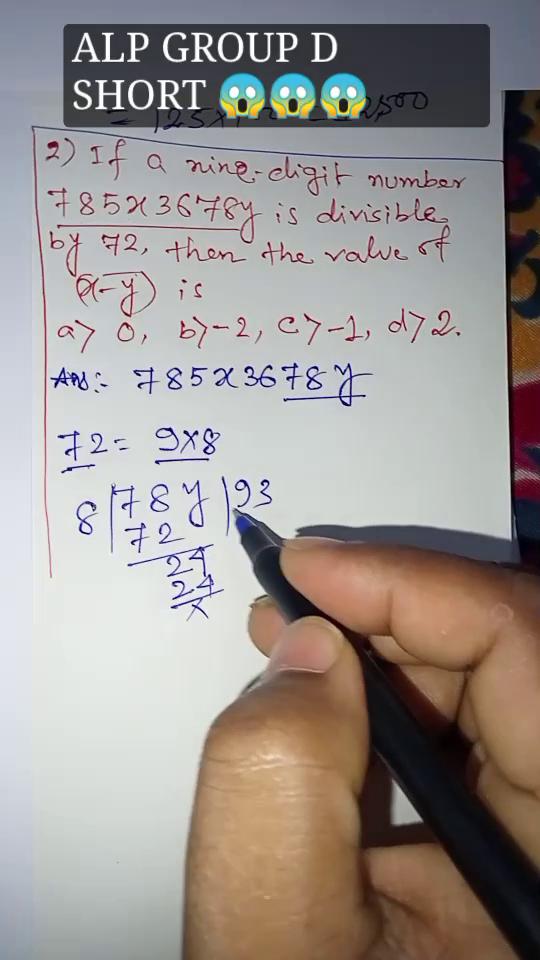 ALP GROUP D
SHORT 😱😱😱
2) If a nine-digit number
785x3678y is divisible
by 72, then the value of
(x-y) is
a> 0, b>-2, c>-1, d>2.
Ans:- 785x3678y
72= 9x8
8|78y|93
72
24
24
x